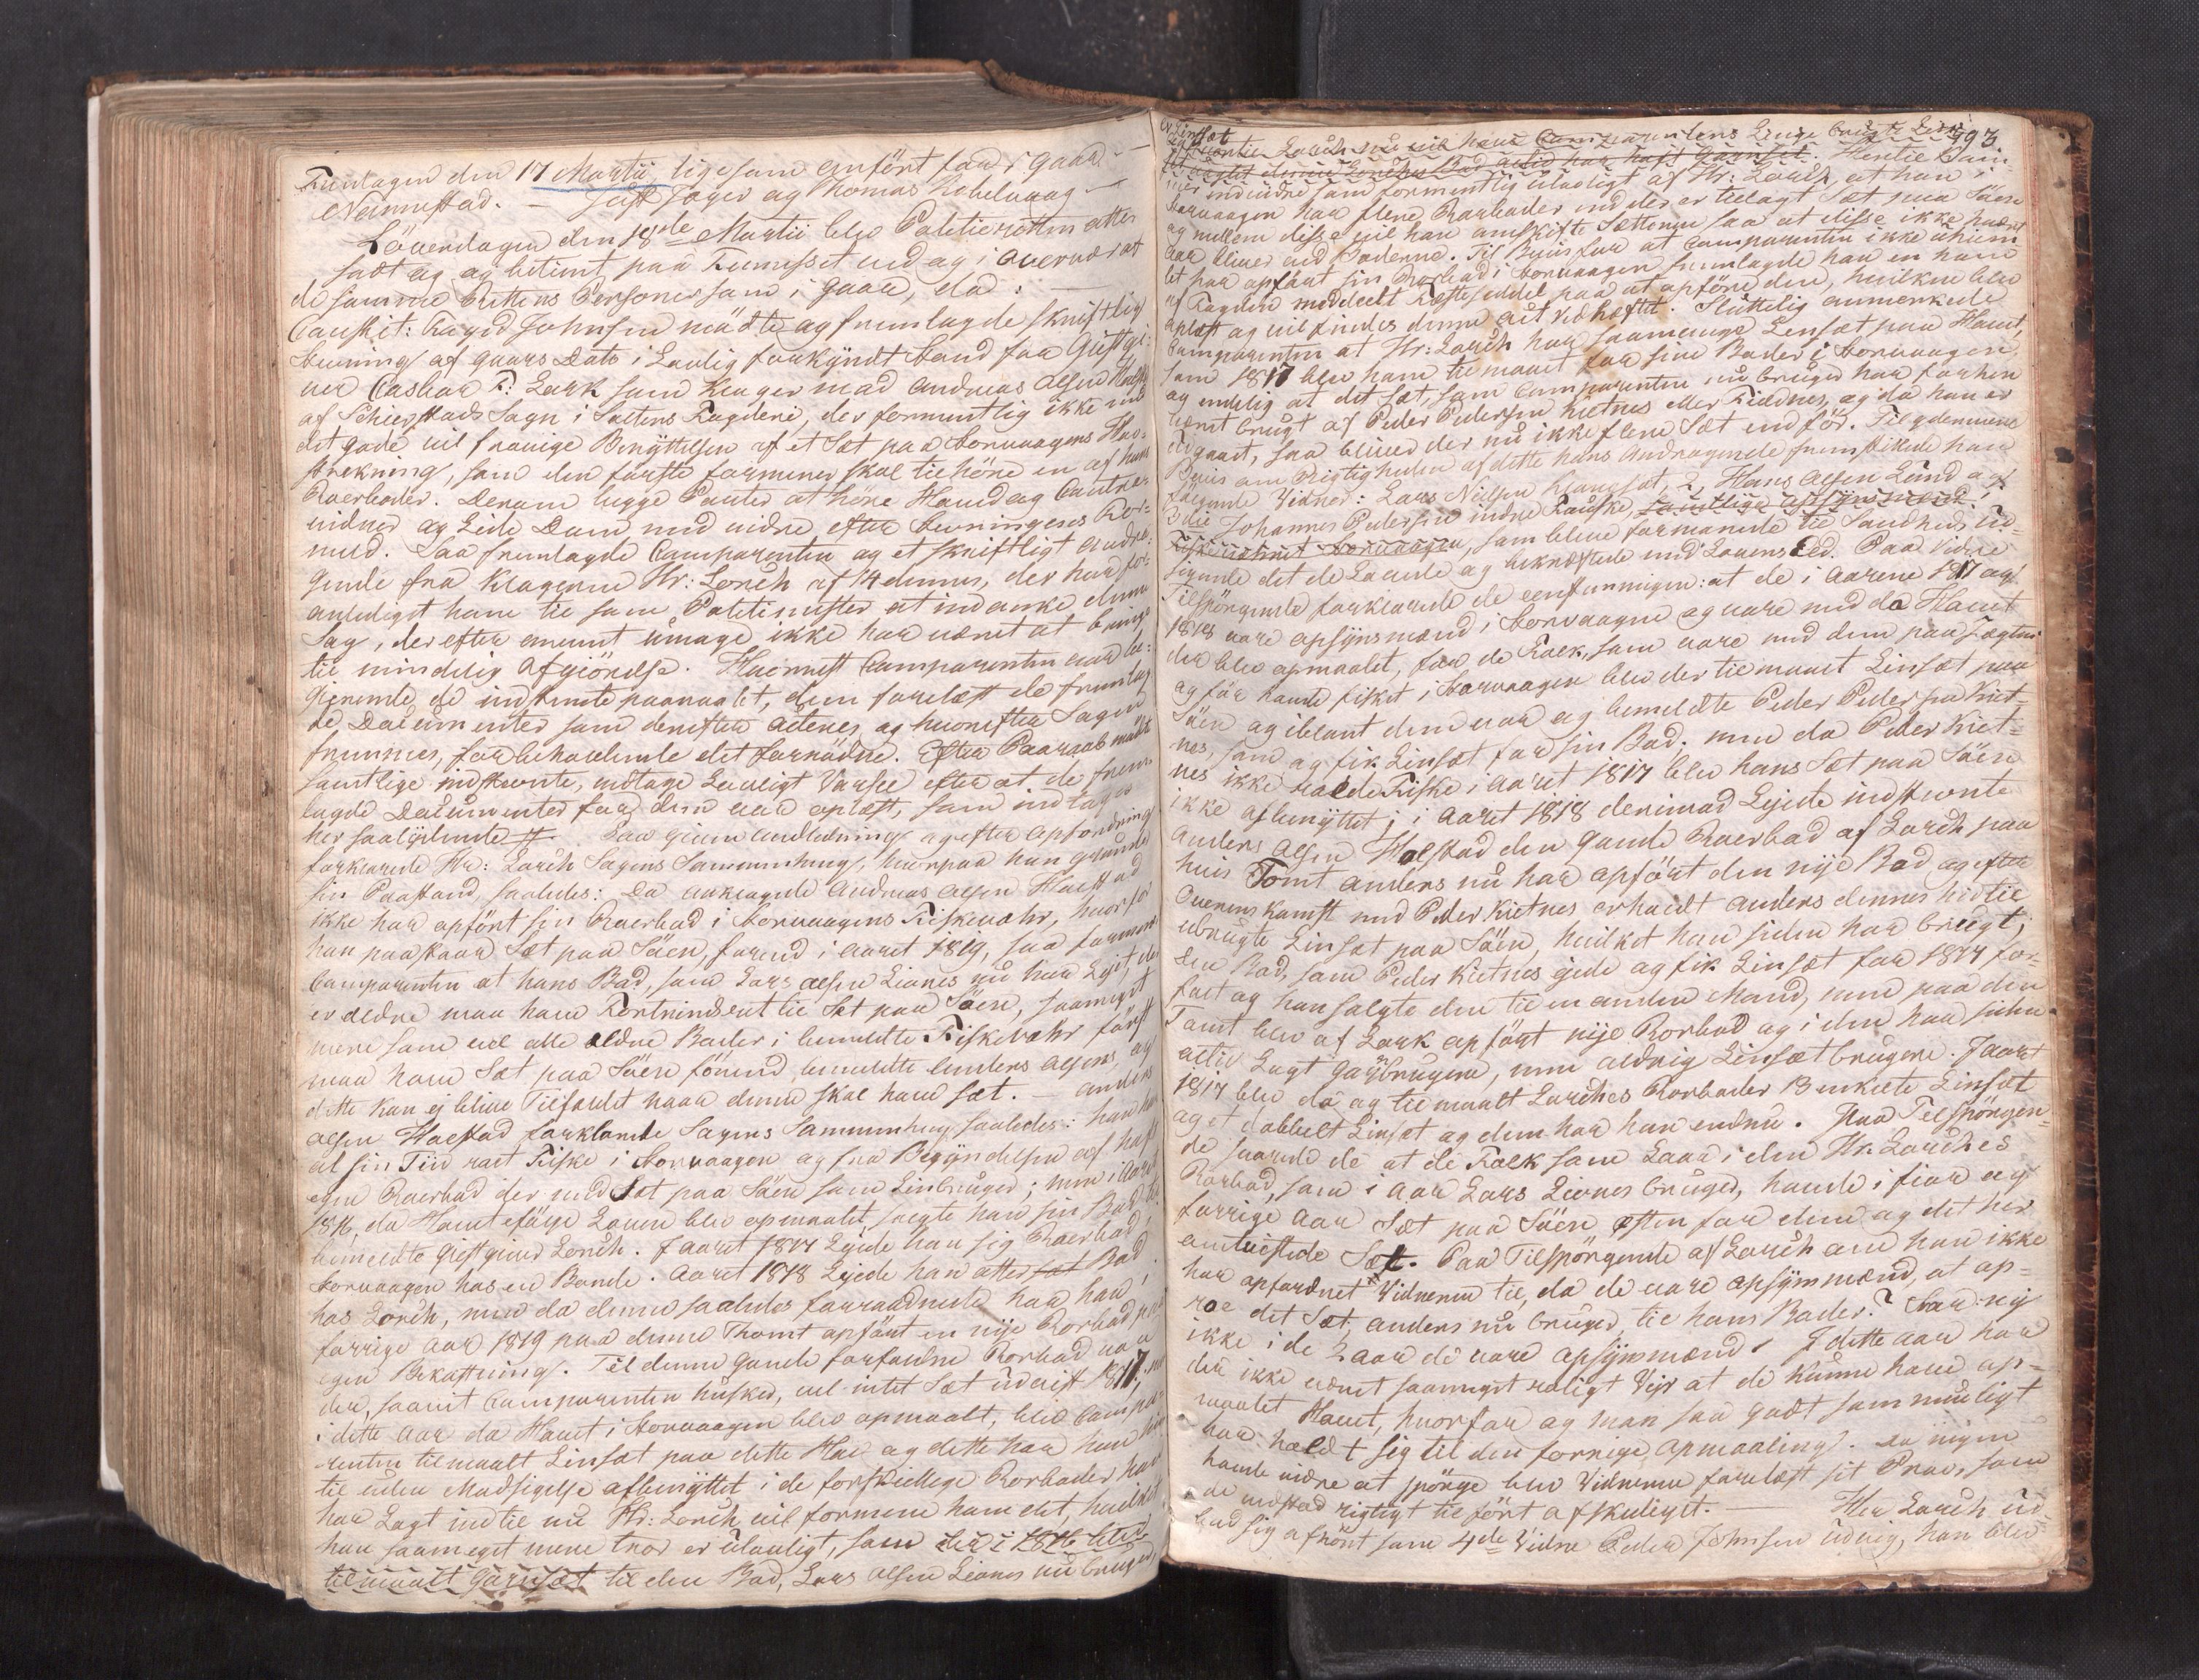 Fredagen den 17 Martii, ligesom anført for i gaar
Nermestad. — Just Jæger og Thomas Kobelvaag —
Løverdagen den 18de Martii blev Politieretten atter
sadt og og betient paa Tinnesset ved og i Overvær af
de samme Rettens Personer som i gaar, da:
Constit: Foged Johnsen mødte og fremlagde skriftlig
Stevning af gaars Dato i Lovlig forkyndt Stand fra Giestgi:
ver Caspar F: Lork som Klager mod Andreas Olsen
af Schierstads Sogn i Saltens Fogderie, der formentlig ikke med
det gode vil fravige Benyttelsen af et Sæt paa Størvaagens Hav-
strekning, som den første formener skal tilhøre en af hans
Roerboder. Derom begge Parter at høre Haud og Contra-
vidner og Lide Dom med videre efter Stevningens For-
mld. Saa fremlagde Comparenten og et skriftligt andra:
gende fra Klageren Hr: Lorch af 14 dennes, der har for-
anlediget ham til som Politimester at indanke denne
Sag, der efter anvent umage ikke har været at bringe
til mindelig Afgiørelse. Hvornest Comparenten
gierende de indstevnte paaraabt, dem forelæst de fremlag-
de Documenter som derefter acteres og hvorefter Sagen
fremmes, forbeholdende det fornødne. Efter Paaraab mødte
samtlige indstevnte, vedtage Lovligt Varsel efter at de frem-
lagde Documenter for dem var oplæst, som indtages
her saalydende #. Paa given anledning og efter opfordring
forklarede Hr: Lorch Sagens Sammenheng, hvorpaa han grunder
sin Paastand, saaledes: Da anklagede Andreas Olsen Holstad
ikke har opført sin Roerbod i Størvaagens Fiskevæhr, hvorfor
han paastaar Sæt paa Søen, førend i Aaret 1819, saa formener
Comparenten at hans Bod, som Lars Olsen Lionis nu har Lejet, der
er ældre maa have Fortrinsret til Sæt paa Søen, saameget
mere som vel alle ældre Boder i bemeldte Fiskevæhr først
maa have Sæt paa Søen førend bemeldte Anders Olsens, og
dette kan ej blive Tilfældet naar denne skal have Sæt. — Anders
Olsen Holstad forklarede Sagens Sammenheng saaledes: han har
al sin Tiid roet Fiske i Størvaagen og fra Begyndelsen af haft
egen Roerbod der med Sæt paa Søen som Linbruger; men i Aaret
1816, da Havet efter Loven blev opmaalet, solgte han sin Bod til
bemeldte Giestgiver Lorch. I Aaret 1817 Lejede han sig Roerbod i
Størvaagen hos en Bonde. Aaret 1818 Lejede han atter sat Bod
hos Lorch, men da denne saaledes forraadnede har han
forrige Aar 1819 paa denne Thomt opført en nye Rorbod paa
egen Bekostning. Til denne gamle forfaldne Rorbod var
der, saavit Comparenten husker, vel intet Sæt udviist 1817; men
i dette Aar da Havet i Størvaagen blev opmaalt, blev Compa-
renten tilmaalt Linsæt paa dette Hav og dette har han hid
til uden Modsigelse afbenyttet i de forskiellige Rorboder han
har Lagt indtil nu Hr: Lorch vil formene ham det, hvilket
han saameget mere troer er ulovligt, som der i 1816 blev
tilmaalt garnsæt til den Bod, Lars Olsen Lionis nu bruger,
993.
og mentie Lorch nu vil have Comparentens Linje brugte Lin-
Linsæt
sæt uagtet denne Lorches Bod altid har haft Garnsæt. Hentie Bem-
mer endvidere som formentlig ulovligt af Hr: Lorch at han i
Størvaagen har flere Rorboder end der er tillagt Sæt paa Søen
og mellem disse vil han omskifte Sætterne saa at disse ikke hvært
Aar bliver ved Boderne. Til Beviis for at Comparenten ikke uhiem-
let har opført sin Rorbod i Størvaagen fremlagde han en ham
af Fogden meddeelt Fæsteseddel paa at opføre den, hvilken blev
oplæst og vil findes denne Act ved heftet. Sluttelig anmerkede
Comparenten at Hr: Lorch har saamange Linsæt paa Havet,
som 1817 blev ham tilmaalt for sine Boder i Størvaagen,
og endelig at det Sæt, som Comparenten nu bruger har forhen
været brugt af Peder Pedersen Kietnes eller Fildnes, og da han er
udgaaet, saa bliver der nu ikke flere Sæt end før. Til ydermeere
Beviis om Rigtigheden af dette hans Andragende fremstillede han
følgende Vidner: Lars Nielsen Lyngsæt, 2, Hans Olsen Lund og
3die Johannes Pedersen indre Fauske, samtlige opsynsmænd i
Fiskeværet Størvaagen, som bleve formanede til Sandheds Ud-
sigende det de Lovede og bekræftede med Lovens Eed. Paa Vidre
Tilspørgende forklarede de eenstemmigen: at de i Aarene 1817 og
1818 vare opsynsmænd i Størvaagen og vare med da Havet
der blev opmaalet, for de Folk, som vare med dem paa Jægten
og før havde fisket i Størvaagen blev der tilmaalt Linsæt paa
Søen og iblant dem var og bemeldte Peder Pedersen Kiet-
nes, som og fik Linsæt for sin Bod; men da Peder Kiet-
nes ikke roede Fiske i Aaret 1817 blev hans Sæt paa Søen
ikke afbenyttet; i Aaret 1818 derimod Lejede indstevnte
Anders Olsen Holstad den gamle Roerbod af Lorch paa
hvis Tomt Anders nu har opført den nye Bod og efter
Overenskomst med Peder Kietnes erholdt Anders dennes hidtil
ubrugte Linsæt paa Søen, hvilket han siden har brugt;
den Bod, som Peder Kietnes ejede og fik Linsæt for 1817 for-
faldt og han solgte den til en anden Mand, men paa den
Tomt blev af Lork opført nye Rorbod og i den har siden
altid Lagt Garnbrugere, men aldrig Linsætbrugere. I Aaret
1817 blev da og tilmaalt Lorches Rorboder 13 enkelte Linsæt
og et dobbelt Linsæt og dem har han endnu. Paa Tilspørgen-
de svarede de at de Folk som Laae i den Hr. Lorches
Rorbod, som i Aar Lars Lionis bruger, havde i fior og
forrige Aar Sæt paa Søen østen for denne og det her
omtvistede Sæt. Paa Tilspørgende af Lorch om han ikke
har opfordret Vidnerne til, da de vare opsynsmænd, at op-
roe det Sæt, Anders nu bruger til hans Boder? Svar: nej
ikke i de 2 Aar de vare opsynsmænd. I dette Aar har
der ikke været saameget roligt Vejr at de kunne have op-
maalet Havet, hvorfor og man saa godt som mueligt
har holdt sig til den forrige opmaaling. Da ingen
havde vidre at spørge blev Vidnerne forelæst sit Prov, som
de vedstod rigtigt tilført afskediget. Her Lorch ud-
bad sig afhørt som 4de Vidne Peder Johnsen Udvig, han blev